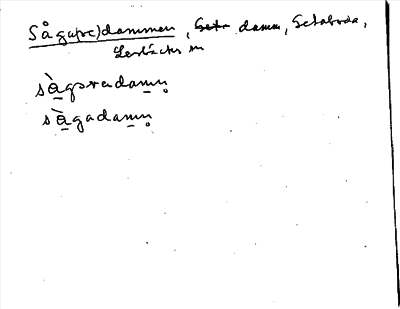 Såga(re)dammen, damm, Setaboda,
Lerbäcks sn
sà̱gǝradam̲n̥
sà̱gadam̲n̥